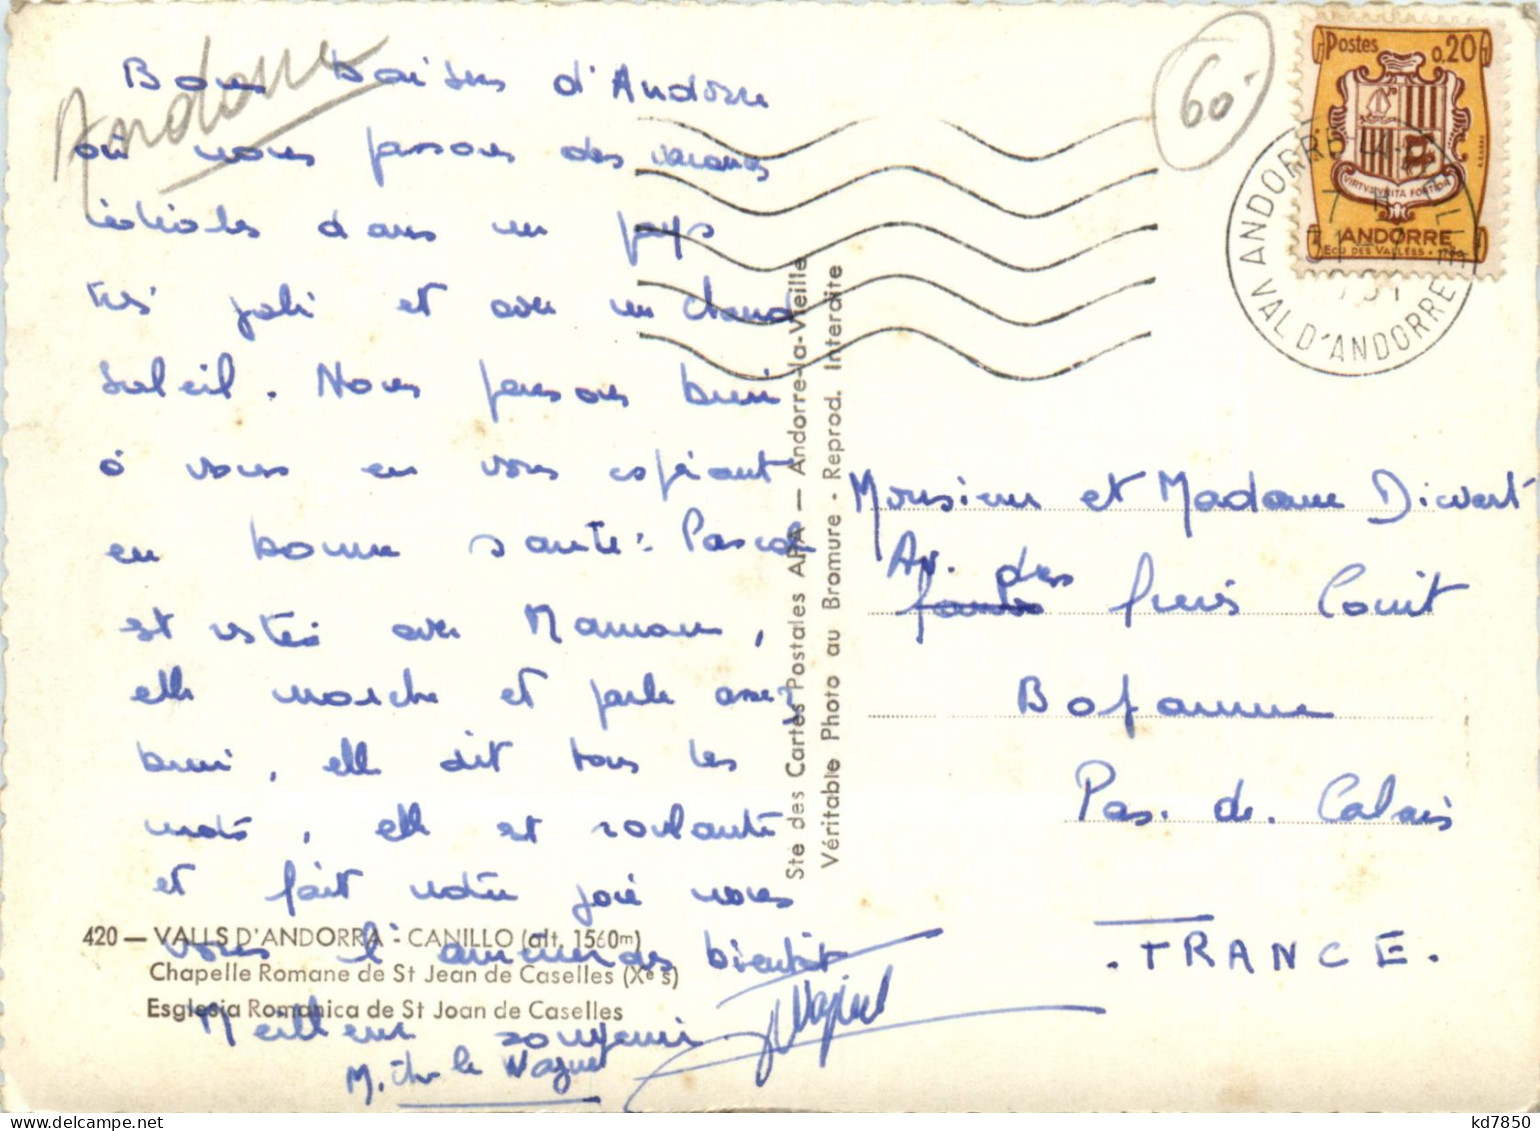 Andorra
60.-
Bons baisers d'Andorre
où nous passons des vacances
idéales dans un pays
très joli et avec un chaud
soleil. Nous pensons bien
à vous en vous espérant
en bonne santé. Pascale
est restée avec Maman,
elle marche et parle assez
bien, elle dit tous les
mots, elle est roulante
et fait notre joie nous
vous l'amènerons bientôt
Meilleur souvenir
M. Wagnet
420 — VALLS D'ANDORRA - CANILLO (alt. 1560m)
Chapelle Romane de St Jean de Caselles (Xe s)
Esglesia Romanica de St Joan de Caselles
Ste des Cartes Postales APA — Andorre-la-Vieille
Véritable Photo au Bromure - Reprod. Interdite
Postes 0.20
VIRTVS VNITA FORTIOR
ANDORRE
ECU DES VALLÉES
ANDORRE-LA-VIEILLE
VAL D'ANDORRE
Monsieur et Madame
Av. des frères
Pas. de. Calais
. FRANCE.
kd7850